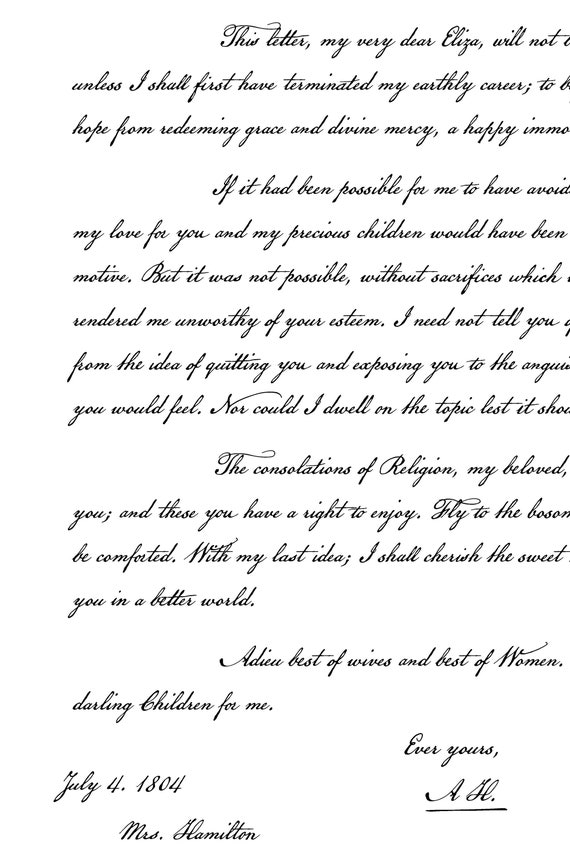 This letter, my very dear Eliza, will not
unless I shall first have terminated my earthly career; to
hope from redeeming grace and divine mercy, a happy immo
If it had been possible for me to have avoid
my love for you and my precious children would have been
motive. But it was not possible, without sacrifices which
rendered me unworthy of your esteem. I need not tell you
from the idea of quitting you and exposing you to the angui
you would feel. Nor could I dwell on the topic lest it shou
The consolations of Religion, my beloved,
you; and these you have a right to enjoy. Fly to the bosom
be comforted. With my last idea; I shall cherish the sweet
you in a better world.
Adieu best of wives and best of Women.
darling Children for me.
Ever yours,
July 4. 1804
A H.
Mrs. Hamilton